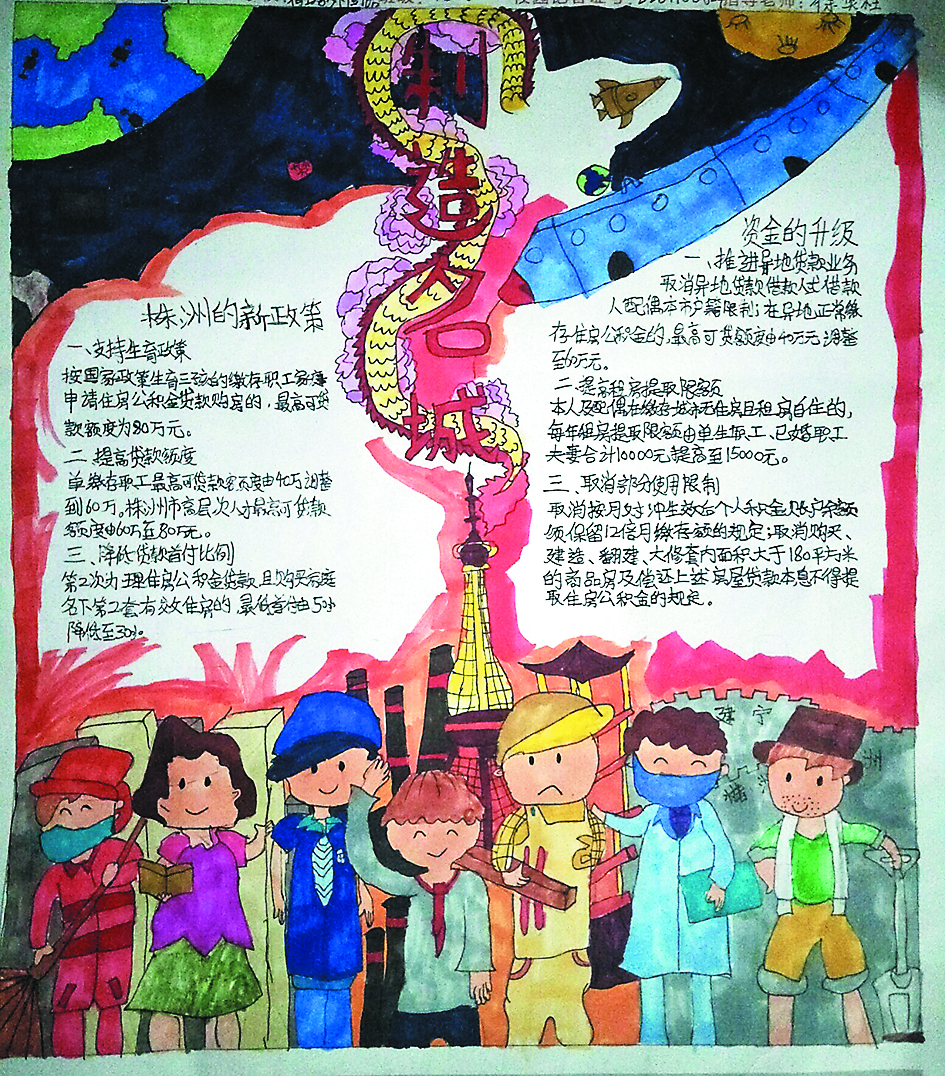 指导老师：
制
造
名
城
株洲的新政策
一、支持生育政策
按国家政策生育三孩的缴存职工家庭
申请住房公积金贷款购房的，最高可贷
款额度为80万元。
二、提高贷款额度
单缴存职工最高可贷款额度由40万调整
到60万。株洲市高层次人才最高可贷款
额度由60万至80万元。
三、降低贷款首付比例
第2次办理住房公积金贷款，且购买家庭
名下第2套有效住房的，最低首付由50%
降低至30%。
资金的升级
一、推进异地贷款业务
取消异地贷款借款人或借款
人配偶本市户籍限制；在异地正常缴
存住房公积金的，最高可贷额度由40万元调整
至60万元。
二、提高租房提取限额
本人及配偶在缴存城市无住房且租房自住的，
每年租房提取限额由单生职工、已婚职工
夫妻合计10000元提高至15000元。
三、取消部分使用限制
取消按月对冲生效后个人积金账户余额
须保留12倍月缴存额的规定；取消购买、
建造、翻建、大修套内面积大于180平方米
的商品房及偿还上述房屋贷款本息不得提
取住房公积金的规定。
建宁
株
州